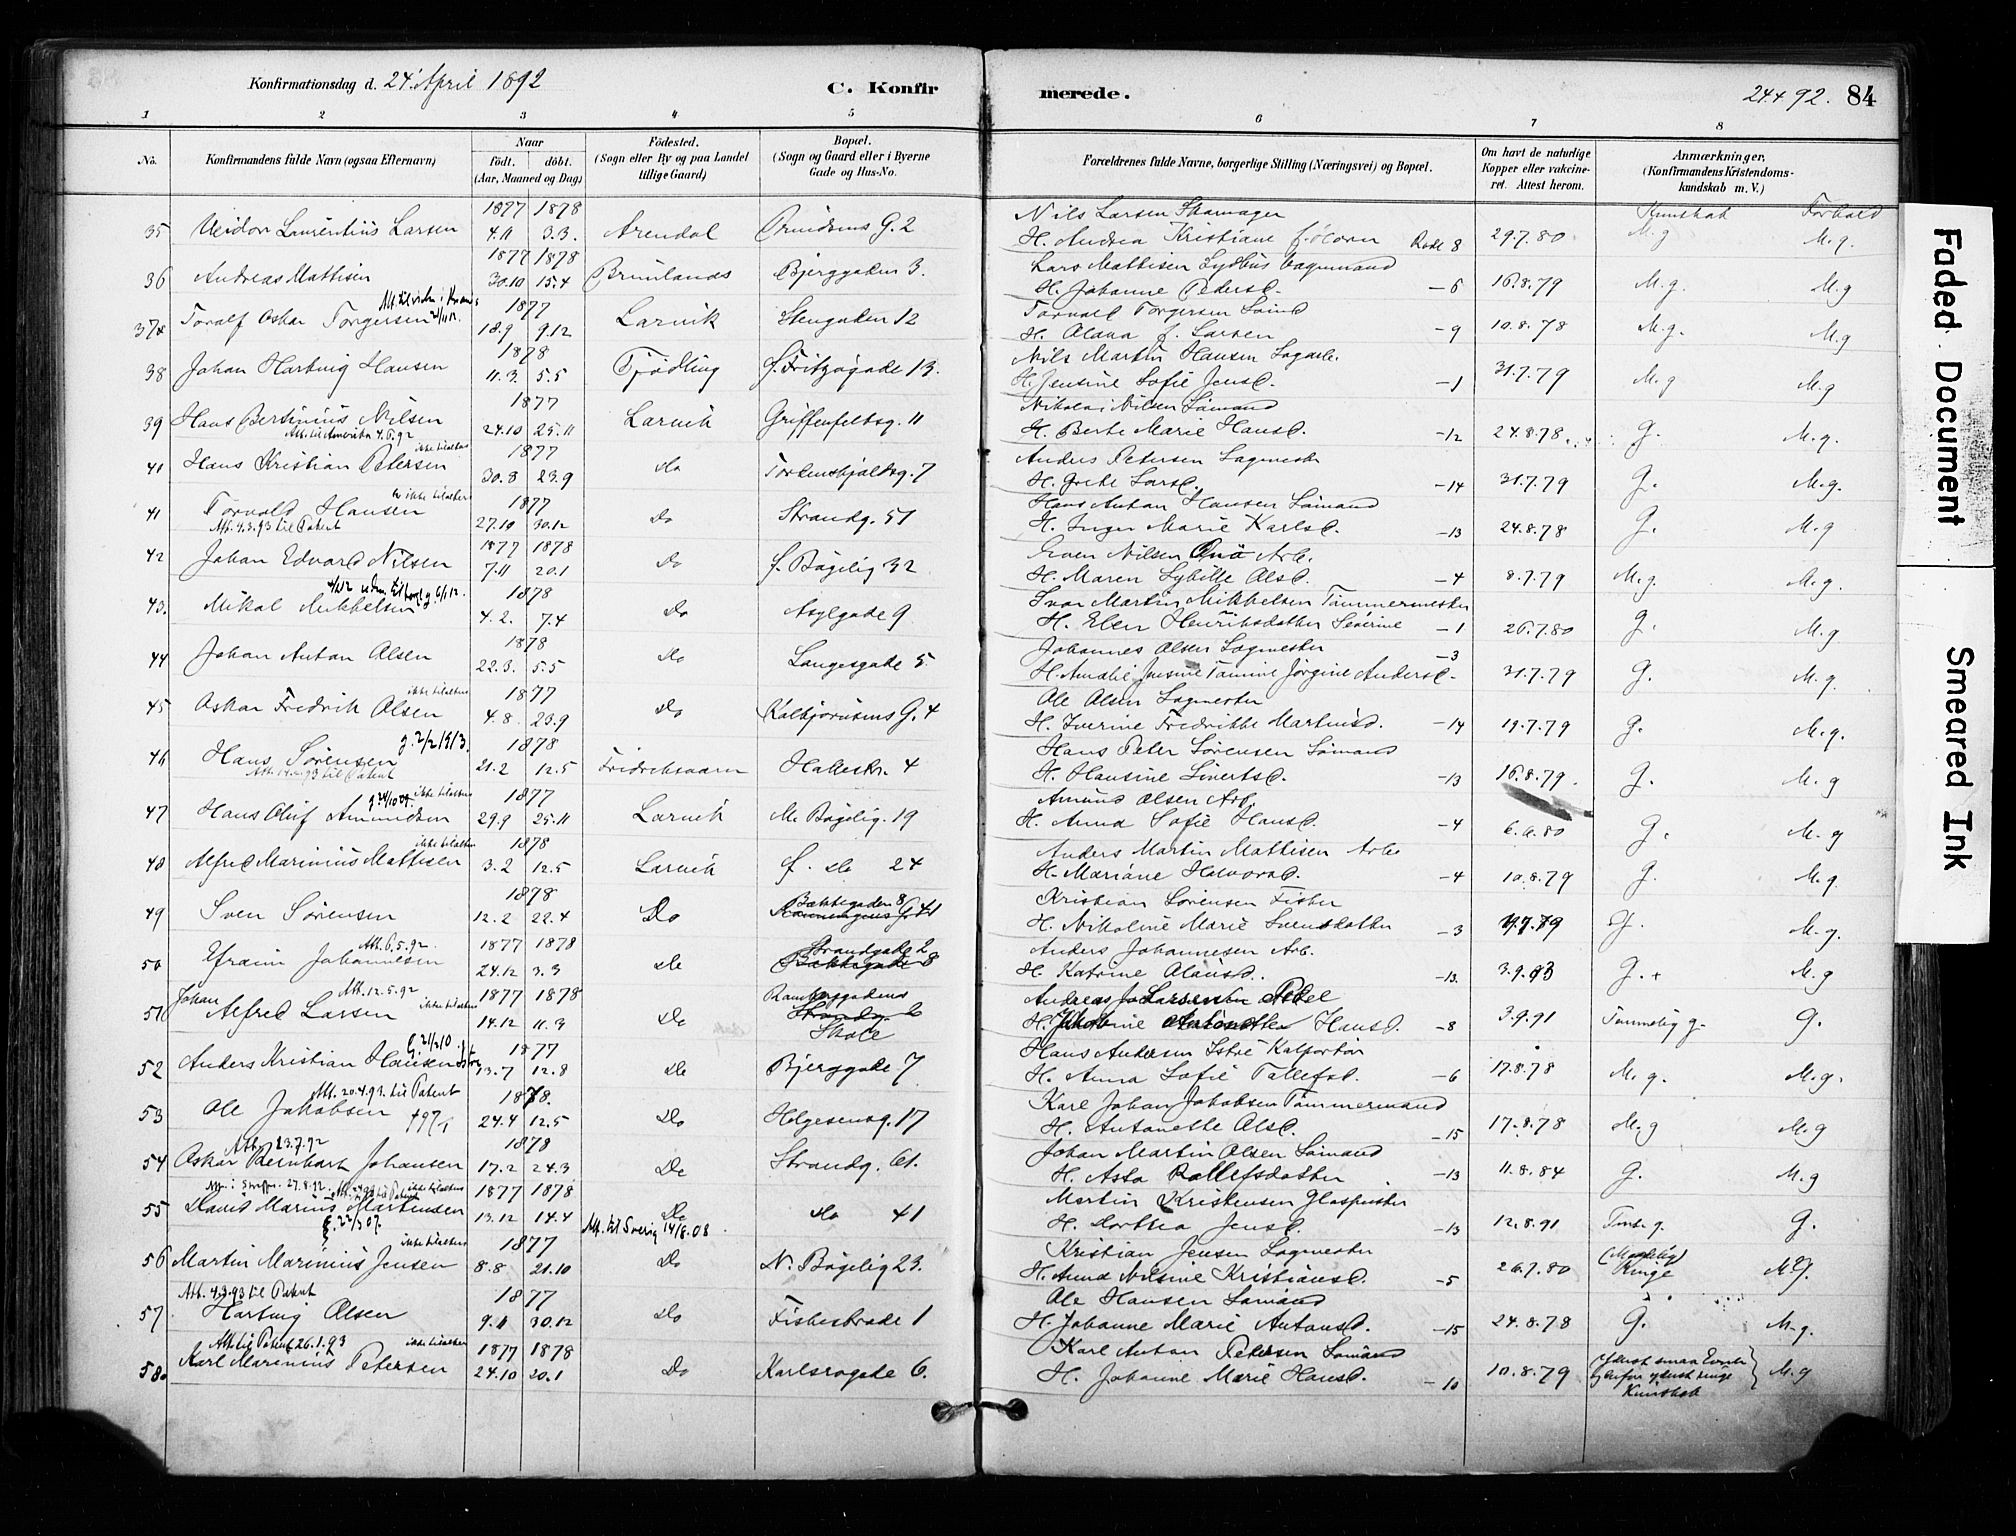 Konfirmationsdag d. 24' April 1892
C. Konfir
merede.
24.4 92. 84
1 2 3 4 5 6 7 8
No.
Konfirmandens fulde Navn (ogsaa Efternavn)
Naar
født. døbt.
(Aar, Maaned og Dag)
Fødested.
(Sogn eller By og paa Landet
tillige Gaard)
Bopæl.
(Sogn og Gaard eller i Byerne
Gade og Hus-No.
Forældrenes fulde Navne, borgerlige Stilling (Næringsvei) og Bopæl.
Om havt de naturlige
Kopper eller vakcine-
ret. Attest herom.
Anmærkninger.
(Konfirmandens Kristendoms-
kundskab m. V.)
Kunskab Forhold
1877 1878 Nils Larsen
35 Laurentius Larsen 4.11 3.3. Arendal G. 2 H. Andrea Kristiane Rode 8 29.7.80 M.g M.g.
1877 1878 Lars Mattisen
36 Andreas Mattisen 30.10 15.4 Brunlanæs Bjerggaden 3. H. Johanne Petersd. – 6 16.8.79 M.g. M.g
1877 Torvald Torgersen
37 Toralf Oskar Torgersen 18.9 9.12 Larvik Stengaden 12 H. Olava f. Larsen – 9 10.8.78 M.g. M.g
1878 Nils Martin Hansen
38 Johan Hartvig Hansen 11.3. 5.5 Tjødling f. Fritzøgade 13. H. Jensine Sofie Jensd. – 1 31.7.79 M.g M.g
1877 Nikolai Nilsen Sømand
39 Hans Bertinius Nilsen 24.10 25.11 Larvik Griffenfeldtsg. 11 H. Berte Marie Hansd. – 12 24.8.78 G. M.g.
Att. til Amerika 4.6.92
ikke tilalters 1877 Anders Petersen Sagmester
41 Hans Kristian Petersen 30.8 23.9 do Tordenskjoldsg. 7 H. Grete Larsd. – 14 31.7.79 G. M.g.
ikke tilalters 1877 Hans Anton Hansen Sømand
41 Torvald Hansen 27.10 30.12 Do Strandg. 51 H. Inger Marie Karlsd. – 13 24.8.78 G. M.g
Att. 4.3.93 til Patent
1877 1878 Even Nilsen Arb.
42 Johan Edvard Nilsen 7.11 20.1 Do f. Bøgelig 32 H. Maren Sybille Olsd. – 4 8.7.79 M.g. M.g.
1878 Martin Mikkelsen Tømmermester
43. Mikal Mikkelsen 4.2. 7.4 Do Asylgade 9 H. Elen Henriksdatter Severine – 1 26.7.80 G. M.g
1878 Johannes Olsen Sagmester – 3
44 Johan Anton Olsen 22.3. 5.5 Do Langesgade 5. H. Amalie Jørgine Andersd. 31.7.79 G. M.g.
ikke tilalters 1877 Ole Olsen Sagmester
45 Oskar Fredrik Olsen 4.8. 23.9 Do Kolbjørnsens G. 4 H. Fredrikke Martinsd. – 14 19.7.79 G. M.g.
g. 2/2 1913. 1878 Hans Peter Sørensen Sømand
46 Hans Sørensen 21.2 12.5 Fredriksværn 4 H. Hansine Sivertsd. – 13 16.8.79. G. M.g
ikke tilalters 1877 Amund Olsen Arb.
47 Hans Oluf Amundsen 29.9 25.11 Larvik M. Bøgelig. 19 H. Anna Sofie Hansd. – 4 6.9.80 G. M.g
ikke tilalters 1878 Anders Martin Mattisen Arb.
48 Alfred Marinius Mattisen 3.2 12.5 Larvik f. do 24 H. Mariane Halvorsd. – 4 10.8.79 G. M.g.
1878 Bækkegaden 8 Kristian Sørensen Fisker
49 Sven Sørensen 12.2 22.4 Do G 41 H. Nikoline Marie Svendsdatter – 3 G. M.g.
Att. 6.5.92. 1877 1878 Strandgade 2 Anders Johannesen Arb.
50 Efraim Johannesen 24.12 3.3 do Bækkegade 8 H. Katrine Olausd. – 13. 3.9.93 G. + M.g
Att. 12.5.92 ikke tilalters 1877 1878 Rambergsgadens Andreas Larsen
51 Johan Alfred Larsen 14.12 11.3 Do Strandg. 6 Skole H. Hansd. – 8 3.9.91 Temmelig g. G.
1877 Hans Andersen
52 Anders Kristian Hansen 13.7 12.8 do Bjerggade 7 H. Anna Sofie Tollefsd. – 6 17.8.78 M.g. M.g.
Att. 20.4.93. til Patent 1878. Karl Johan Jakobsen Tømmermand
53 Ole Jakobsen 24.4 12.5 Do Helgesensg. 17 H. Antonette Olsd. – 15 17.8.78 M.g M.g
Att. 23.7.92 1878 Johan Martin Olsen Sømand
54 Oskar Reinhart Johansen 17.2 24.3 Do Strandg. 61. H. Asta Rollefsdatter – 13 11.8.84 G. M.g
1877 1878 Martin Kristensen
55 David Marius Martensen 13.12 14.4 Do do 41 H. Dortea Jensd. – 13 12.8.91 Tms. g. G.
22/3 07. Att. til Sverig 14/8.08
ikke tilalters 1877 Kristian Jensen Sagmester
56 Martin Marinius Jensen 8.8 21.10 Do N. Bøgelig 23. H. Anna Nilsine Kristiansd. – 5 26.7.80 (Maadelig) Ringe M.g.
Att. 4.3.93 til Patent 1877 Ole Hansen Sømand
57 Hartvig Olsen 9.11 30.12 Do Fiskestrade 1 H. Johanne Marie Antonsd. – 15 24.8.78 G. M.g.
Att. til Patent 26.1.93 ikke tilalters 1877 1878 Karl Anton Petersen Sømand
58. Karl Marinius Petersen 24.10 20.1 Do Karlsrogade 6. H. Johanne Marie Hansd. – 10 10.8.79 (yderst smaa Evner og derfor yderst ringe Kundskab M.g
Faded Document
Smeared Ink